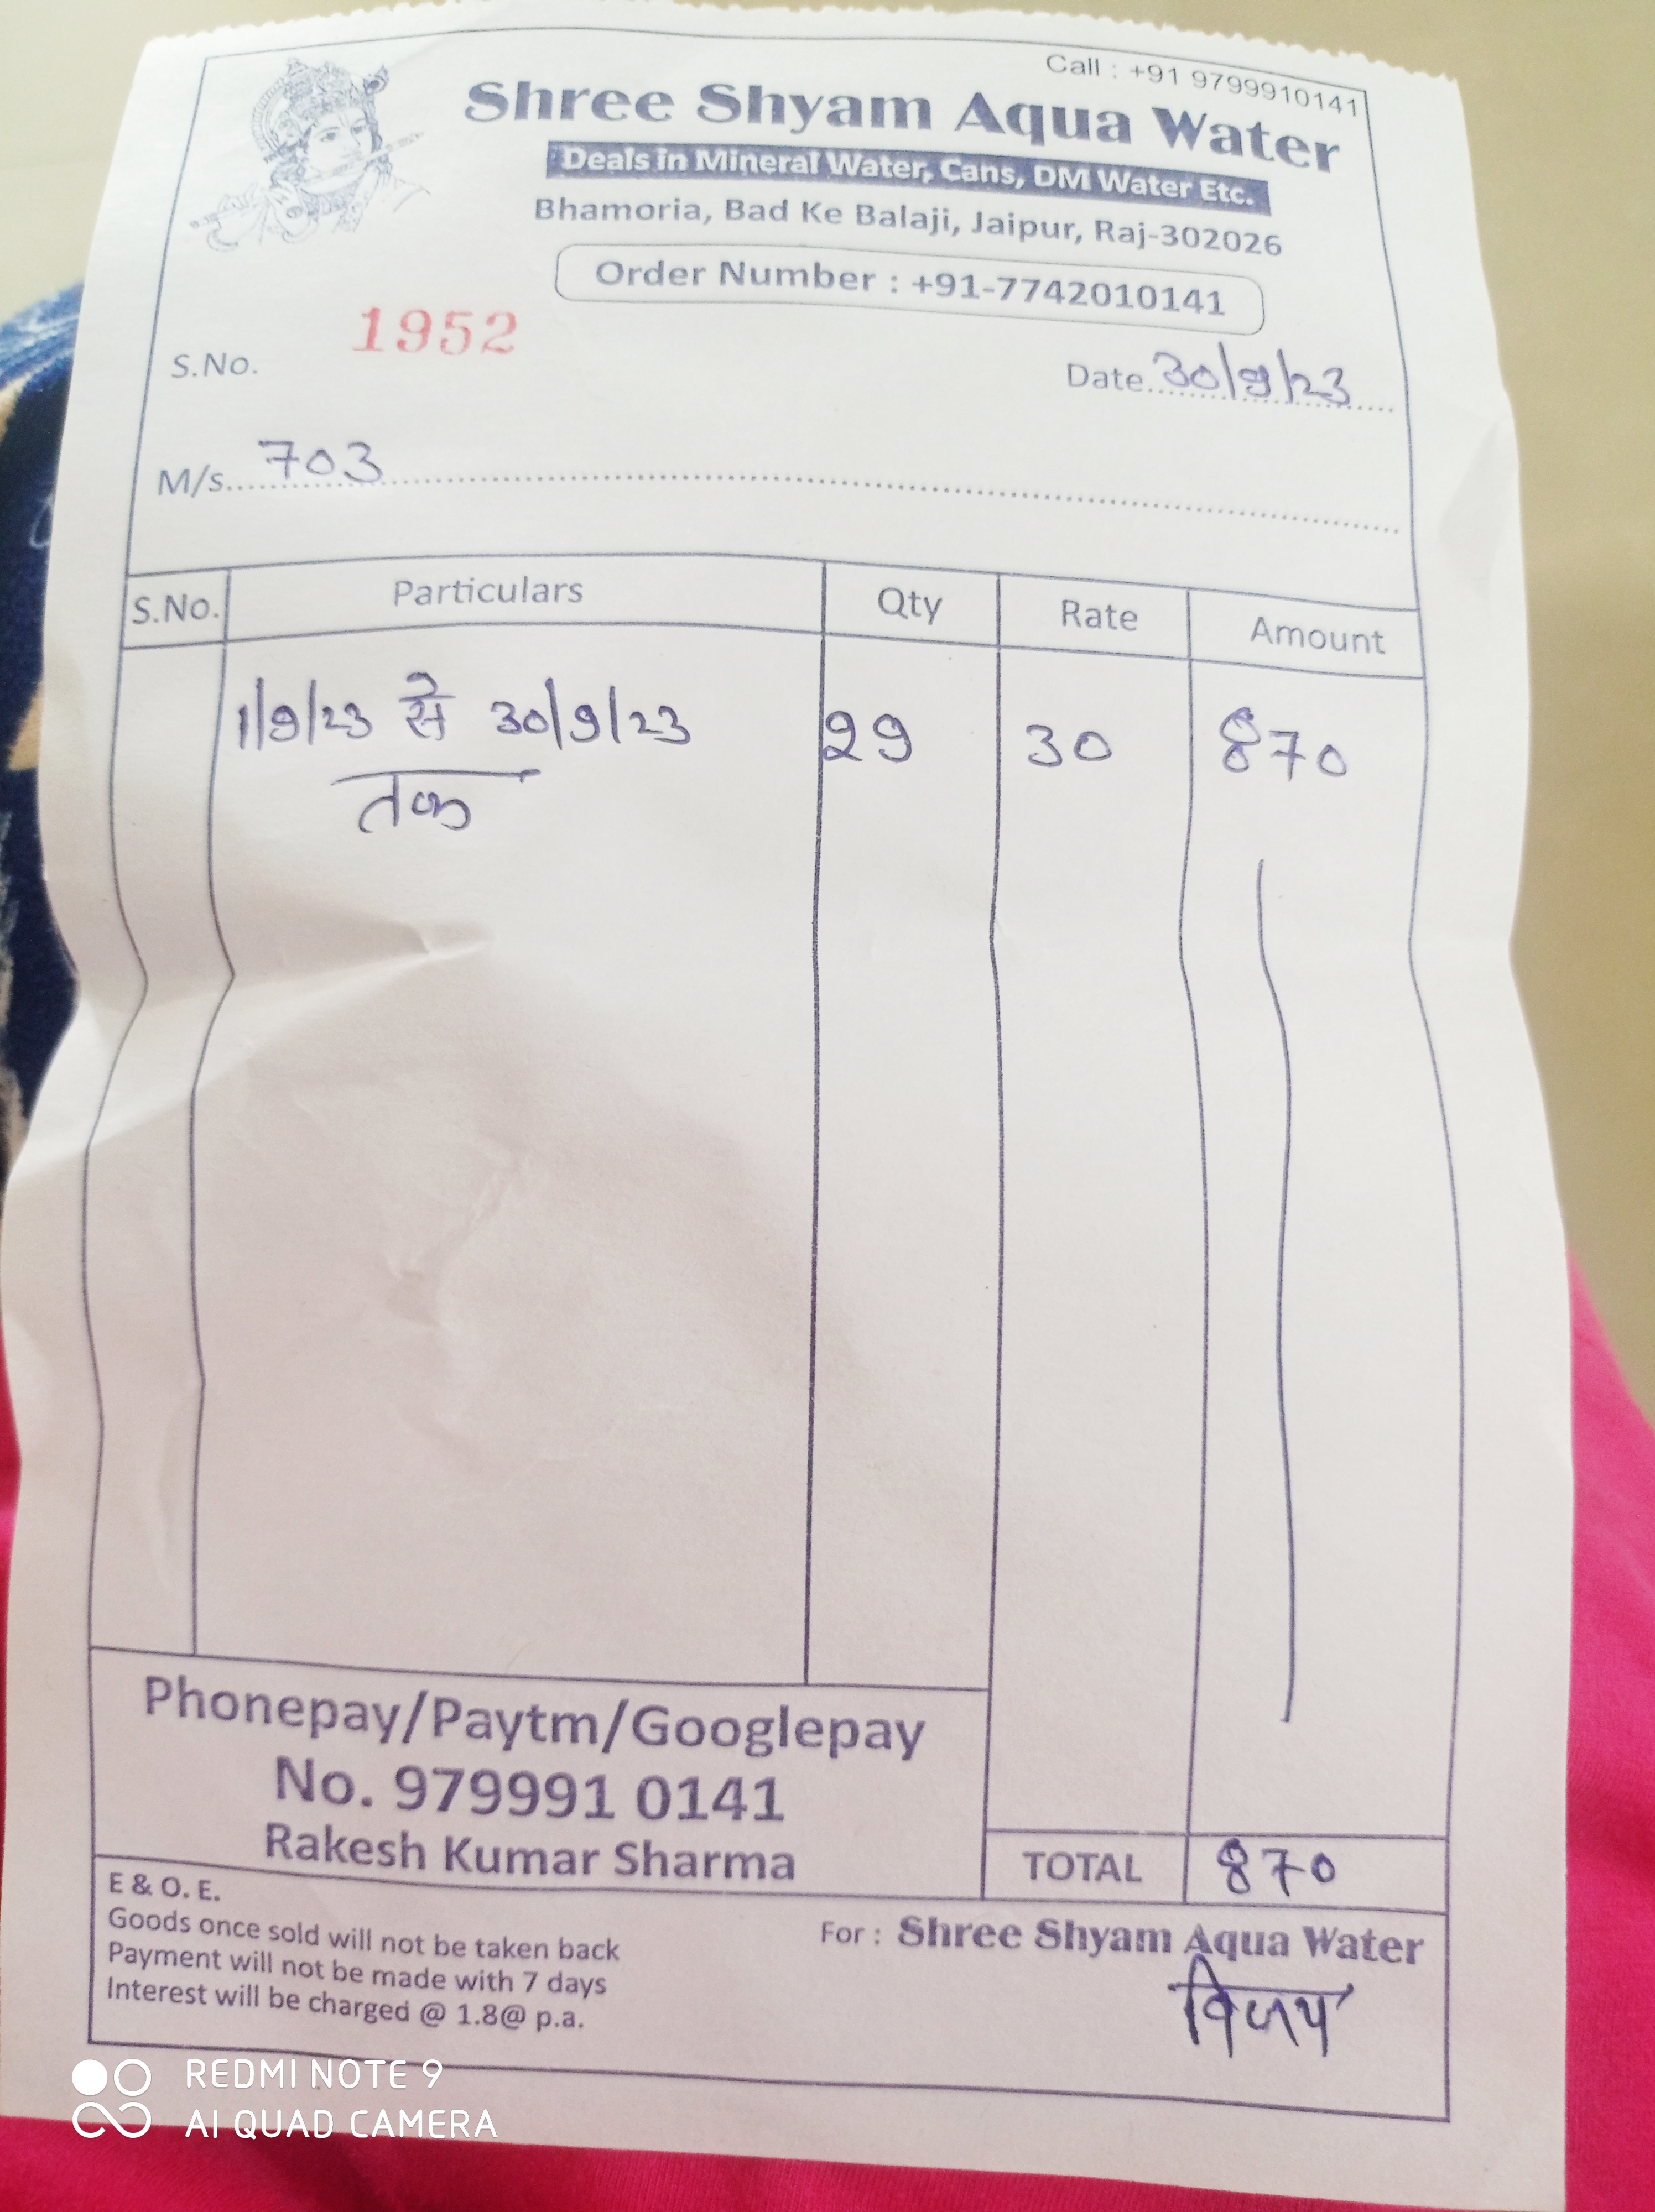 Call : +91 9799910141
Shree Shyam Aqua Water
Deals in Mineral Water, Cans, DM Water Etc.
Bhamoria, Bad Ke Balaji, Jaipur, Raj-302026
Order Number : +91-7742010141
S.No. 1952
Date 30/9/23
M/s 703
S.No. Particulars Qty Rate Amount
1/9/23 से 30/9/23 29 30 870
तक
Phonepay/Paytm/Googlepay
No. 979991 0141
Rakesh Kumar Sharma
TOTAL 870
E & O. E.
Goods once sold will not be taken back
Payment will not be made with 7 days
Interest will be charged @ 1.8@ p.a.
For : Shree Shyam Aqua Water
विजय
REDMI NOTE 9
AI QUAD CAMERA